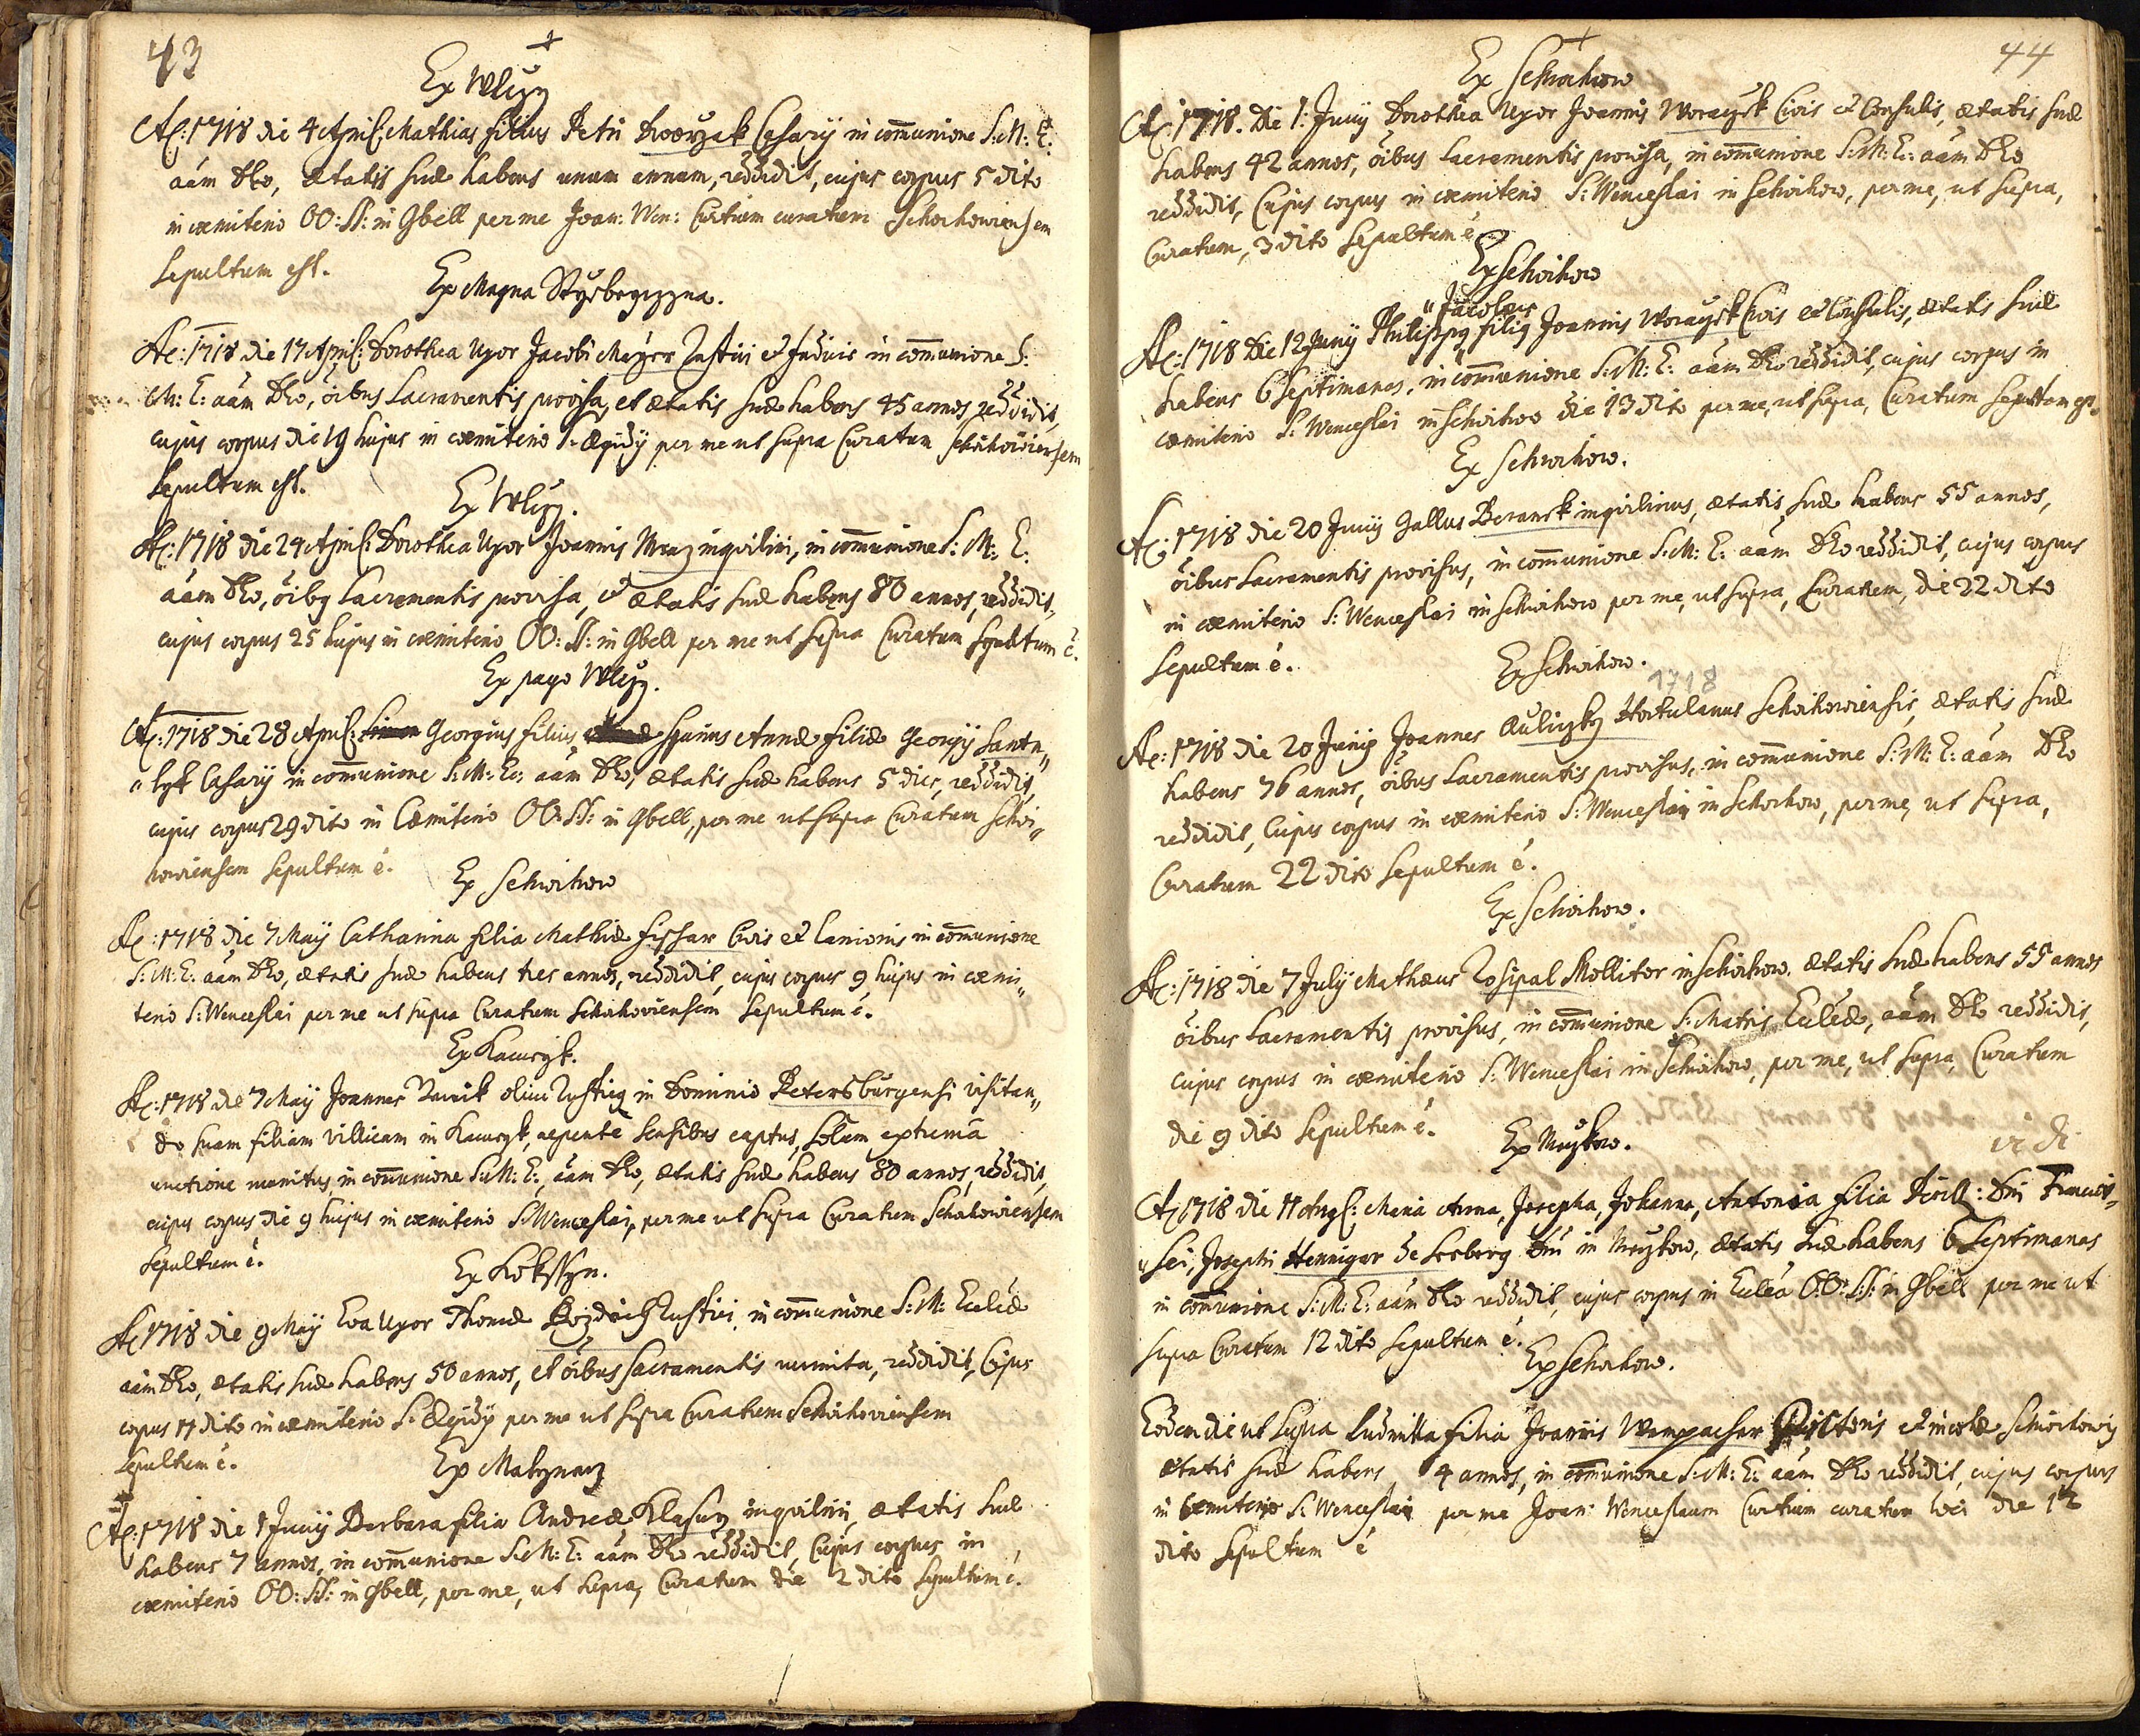 43
Ex Wlczy
Ao: 1718 die 4 April: Mathias filius Petri Dworzak Casarij in com̄unione S: M: E:
aām Dēo, ætatis suæ habens unum annum, reddidit, cujus corpus 5 dito
in cœmiterio OO: SS: in Gbell per me Joan: Wen: Curtium curatum Schohowiensem
sepultum est.
Ex Magna
Ao: 1718 die 17 April: Dorothea Uxor Jacobi Mayer Rustici et Judicis in com̄unione S:
M: E: aām Dēo, oībus Sacramentis provisa, et ætatis suæ habens 45 annos, reddidit,
cujus corpus die 19 hujus in cœmiterio S: Ægidij per me ut supra Curatum Schihowiensem
Sepultum est.
Ex Wlczy.
Ao: 1718 die 24 April: Dorothea Uxor Joannis Mraz inquilini, in com̄unione S: M: E:
aām Dēo, oībg Sacramentis provisa, et ætatis suæ habens 80 annos, reddidit,
cujus corpus 25 hujus in cœmiterio OO: SS: in Gbell per me ut supra Curatum sepultum ē.
Ex pago Wlczy.
Ao: 1718 die 28 April: Georgius filius, spurius Annæ filiæ Georgij Santr„
„lyk Casarij in com̄unione S: M: E: aām Dēo, ætatis suæ habens 5 dies, reddidit,
cujus corpus 29 dito in Cœmiterio OO: SS: in Gbell, per me ut supra Curatum Schi„
howiensem sepultum ē.
Ex Schwihow
Ao: 1718 die 7 Maij Catharina filia Mathiæ Fissar Civis et Lanionis in com̄unione
S: M: E: aām Dēo, ætatis suæ habens tres annos, reddidit, cujus corpus 9 hujus in cœmi„
terio S: Wenceslai per me ut supra Curatum Schihoviensem Sepultum ē.
Ex Kawrzyk.
Ao: 1718 die 7 Maij Joannes olim Rusticg in Dominio Petersburgensi visitan„
do suam filiam villicam in Kawrzyk, repente sensibus captus, solum extrema
unctione munitus, in com̄unione S: M: E:, aām Dēo, ætatis suæ habens 80 annos, reddidit,
cujus corpus die 9 hujus in cœmiterio S: Wenceslai, per me ut supra Curatum Schihowiensem
Sepultum ē.
Ex Kokssyn.
Ao 1718 die 9 Maij Eva Uxor Thomæ Rustici, in com̄unione S: M: Ecclæ
aām Dēo, ætatis suæ habens 50 annos, et oībus sacramentis munita, reddidit, Cujus
corpus 11 dito in cœmiterio S: Ægidij per me ut supra Curatum Schwihoviensem
Sepultum ē.
Ex Malynacz
Ao: 1718 die 1 Junij Barbara filia Andreæ Klasuz inquilini, ætatis suæ
habens 7 annos, in com̄unione S: M: E: aām Dēo reddidit, Cujus corpus in
cœmiterio OO: SS: in Gbell, per me, ut supra, Curatum die 2 dito Sepultum ē.
44
Ex Schwihow
Ao: 1718. Die 1: Junij Dorothea Uxor Joannis Woraczek Civis et Consulis, ætatis suæ
habens 42 annos, oībus Sacramentis provisa, in com̄unione S: M: E: aām Dēo
reddidit, Cujus corpus in cœmiterio S: Wenceslai in Schwihow, per me, ut supra,
Curatum, 3 dito Sepultum ē.
Ex Schwihow
„Jacobus
Ao: 1718 Die 12 Junij Philippg filig Joannis Woraczek Civis et Consulis, ætatis suæ
habens 6 septimanas, in com̄unione S: M: E: aām Dēo reddidit, cujus corpus in
cœmiterio S: Wenceslai in Schwihow die 13 dito per me, ut supra, Curatum Sepultum est.
Ex Schwihow.
Ao: 1718 die 20 Junij Gallus Beranek inquilinus, ætatis suæ habens 55 annos,
oībus Sacramentis provisus, in com̄unione S: M: E: aām Dēo reddidit, cujus corpus
in cœmiterio S: Wenceslai in Schwihow per me, ut supra, Curatum, die 22 dito
Sepultum ē.
Ex Schwihow.
1718
Ao: 1718 die 20 Junij Joannes Auliczky Hortulanus Schwihowiensis, ætatis suæ
habens 76 annos, oībus Sacramentis provisus, in com̄unione S: M: E: aām Dēo
reddidit, Cujus corpus in cœmiterio S: Wenceslai in Schwihow, per me, ut supra,
Curatum 22 dito Sepultum ē.
Ex Schwihow.
Ao: 1718 die 7 July Mathæus Rosipal Mollitor in Schwihow, ætatis suæ habens 55 annos
oībus Sacramentis provisus, in com̄unione S: Matris Ecclæ, aām Dēo reddidit,
cujus corpus in cœmiterio S: Wenceslai in Schwihow, per me, ut supra, Curatum
die 9 dito Sepultum ē.
Ex Mezkow.
vidi
Ao 1718 die 11 Aug: Maria Anna, Josepha, Johanna, Antonia filia Dni Francis„
„sci, Josephi Hennigar de Seeberg Dni in Mezkow, ætatis suæ habens 6 Septimanas
in com̄unione S: M: E: aām Dēo reddidit, cujus corpus in Eccleā OO: SS: in Gbell per me ut
supra Curatum 12 dito Sepultum ē.
Ex Schwihow.
Eodem die ut supra Ludmilla filia Joannis Wampacher Pistoris et incolæ Schwihowiz
ætatis suæ habens 4 annos, in com̄unione S: M: E: aām Dēo reddidit, cujus corpus
in Cœmiterio S: Wenceslai per me Joan: Wenceslaum Curtium curatum loci die 12
dito Sepultum ē